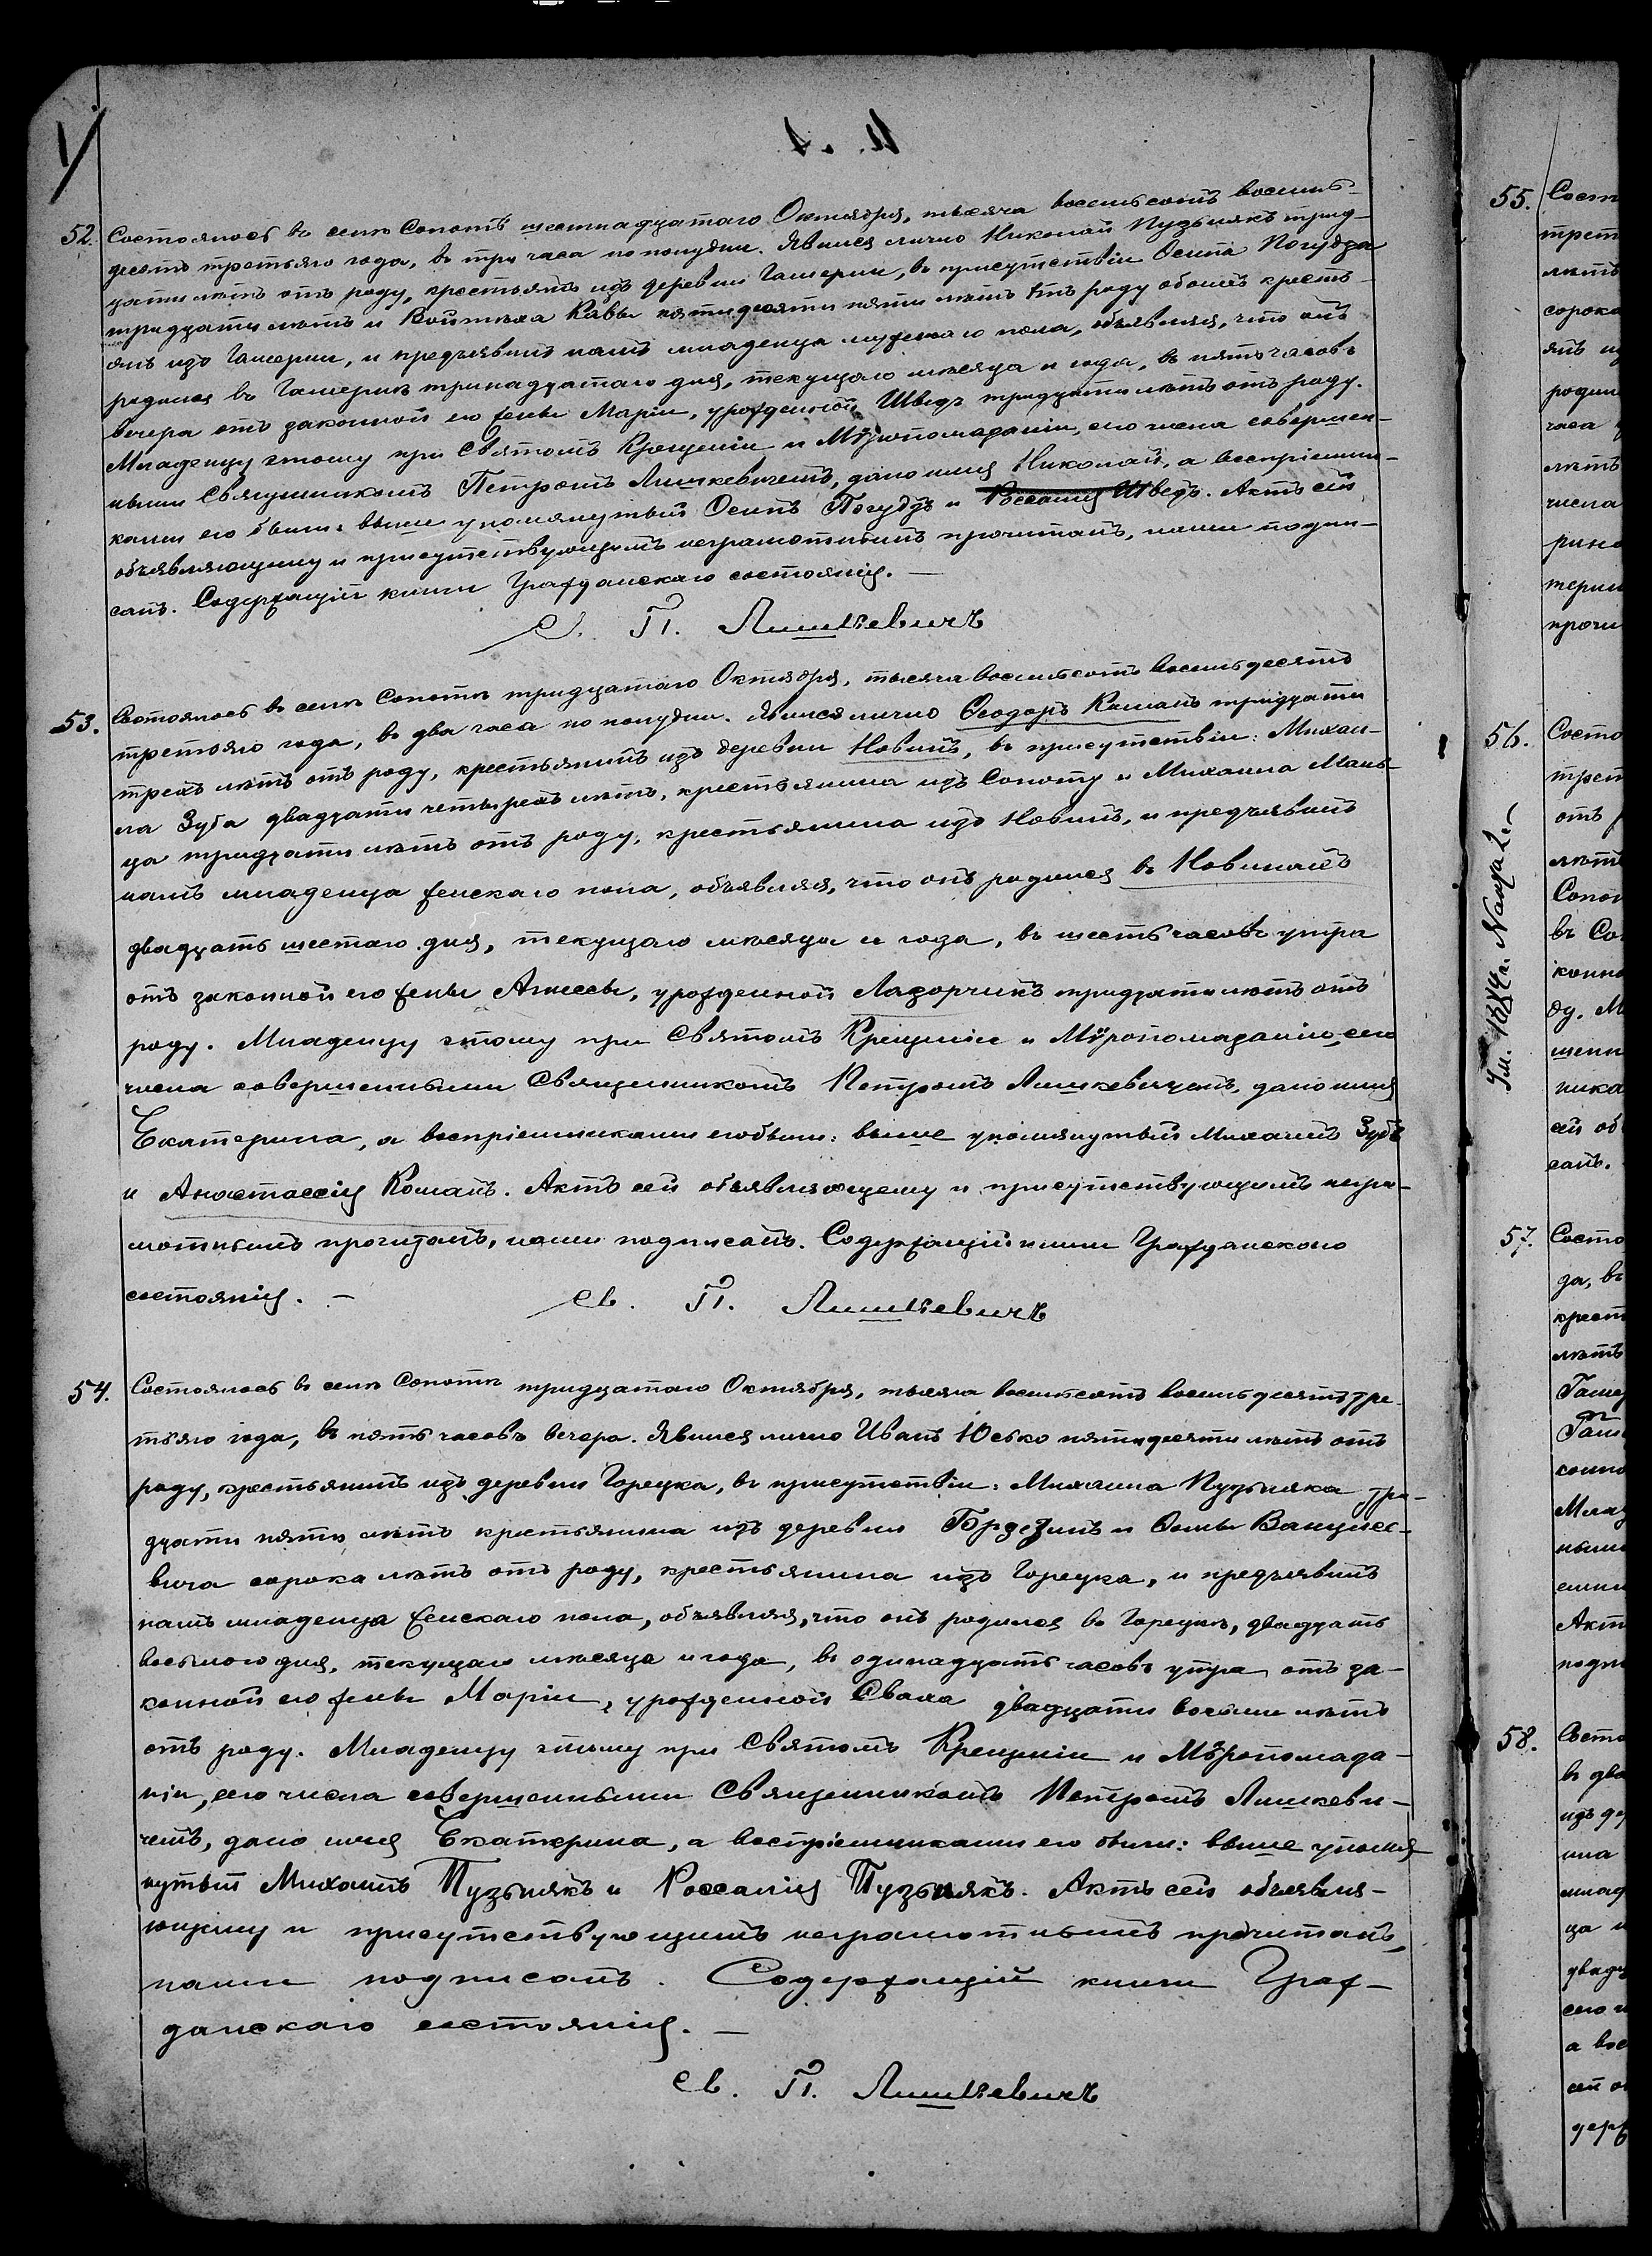 52. Состоялось въ селѣ Сопотѣ шестнадцатаго Октября, тысяча восемьсотъ восемь-
десятъ третьяго года, въ три часа по полудни. Явился лично Николай Пузьнякъ трид-
цати лѣтъ отъ роду, крестьянъ изъ деревни Гамерни, въ присутствіи Осипа Погудза
тридцати лѣтъ и Войтѣха Кавы пятидесяти пяти лѣтъ отъ роду обоихъ кресть-
янъ изъ Гамерни, и предъявилъ намъ младенца мужескаго пола, объявляя, что онъ
родился въ Гамернѣ тринадцатаго дня, текущаго мѣсяца и года, въ пять часовъ
вечера отъ законной его жены Маріи, урожденной Шведъ тридцати лѣтъ отъ роду.
Младенцу этому при Святомъ Крещеніи и Мѵропомазаніи, его числа совершен-
ными Священникомъ Петромъ Лишкевичемъ, дано имя Николай, а воспріемни-
ками его были: выше упомянутый Осипъ Погудзъ и Россалія Шведъ. Актъ сей
объявляющему и присутствующимъ неграмотнымъ прочитанъ, нами подпи-
санъ. Содержащій книги Гражданскаго состоянія. —
С. П. Лишкевичъ
53. Состоялось въ селѣ Сопотѣ тридцатаго Октября, тысяча восемьсотъ восемьдесятъ
третьяго года, въ два часа по полудни. Явился лично Ѳеодоръ Команъ тридцати
трехъ лѣтъ отъ роду, крестьянинъ изъ деревни Новинъ, въ присутствіи: Михаи-
ла Зуба двадцати четырехъ лѣтъ, крестьянина изъ Сопоту и Михаила Маль-
ца тридцати лѣтъ отъ роду, крестьянина изъ Новинъ, и предъявилъ
намъ младенца женскаго пола, объявляя, что онъ родился въ Новинахъ
двадцать шестаго дня, текущаго мѣсяца и года, въ шесть часовъ утра
отъ законной его жены Агнесы, урожденной Лазорчикъ тридцати лѣтъ отъ
роду. Младенцу этому при Святомъ Крещеніи и Мѵропомазаніи, сего
числа совершенными Священникомъ Петромъ Лишкевичемъ, дано имя
Екатерина, а воспріемниками его были: выше упомянутый Михаилъ Зубъ
и Анастассія Команъ. Актъ сей объявляющему и присутствующимъ негра-
мотнымъ прочитанъ, нами подписанъ. Содержащій книги Гражданскаго
состоянія. —
Св. П. Лишкевичъ
54. Состоялось въ селѣ Сопотѣ тридцатаго Октября, тысяча восемьсотъ восемьдесятъ тре-
тьяго года, въ пять часовъ вечера. Явился лично Иванъ Юсько пятидесяти лѣтъ отъ
роду, крестьянинъ изъ деревни Горецка, въ присутствіи: Михаила Пузьняка три-
дцати пяти лѣтъ крестьянина изъ деревни и Ѳомы
сорока лѣтъ отъ роду, крестьянина изъ Горецка, и предъявилъ
намъ младенца женскаго пола, объявляя, что онъ родился въ Горецкѣ, двадцать
восьмого дня, текущаго мѣсяца и года, въ одинадцать часовъ утра отъ за-
конной его жены Маріи, урожденной Сваха двадцати восьми лѣтъ
отъ роду. Младенцу этому при Святомъ Крещеніи и Мѵропомаза-
ніи, сего числа совершенными Священникомъ Петромъ Лишкеви-
чемъ, дано имя Екатерина, а воспріемниками его были: выше упомя-
нутый Михаилъ Пузьнякъ и Россалія Пузьнякъ. Актъ сей объявля-
ющему и присутствующимъ неграмотнымъ прочитанъ,
нами подписанъ. Содержащій книги Граж-
данскаго состоянія. —
Св. П. Лишкевичъ
55. Сост
трет
лѣтъ
сорока
янъ и
родил
часа
лѣтъ
числа
рино
терин
прочи
56. Состо
трет
отъ
лѣтъ
Сопо
въ Со
конно
ду. М
щенн
ника
сей об
санъ.
57. Состо
да, въ
крест
лѣтъ
Гаме
Гам
конно
Млад
ными
емни
Актъ
подп
58. Состо
въ два
изъ де
ина
млад
ца и
двадц
сего ч
а вос
сей о
держ